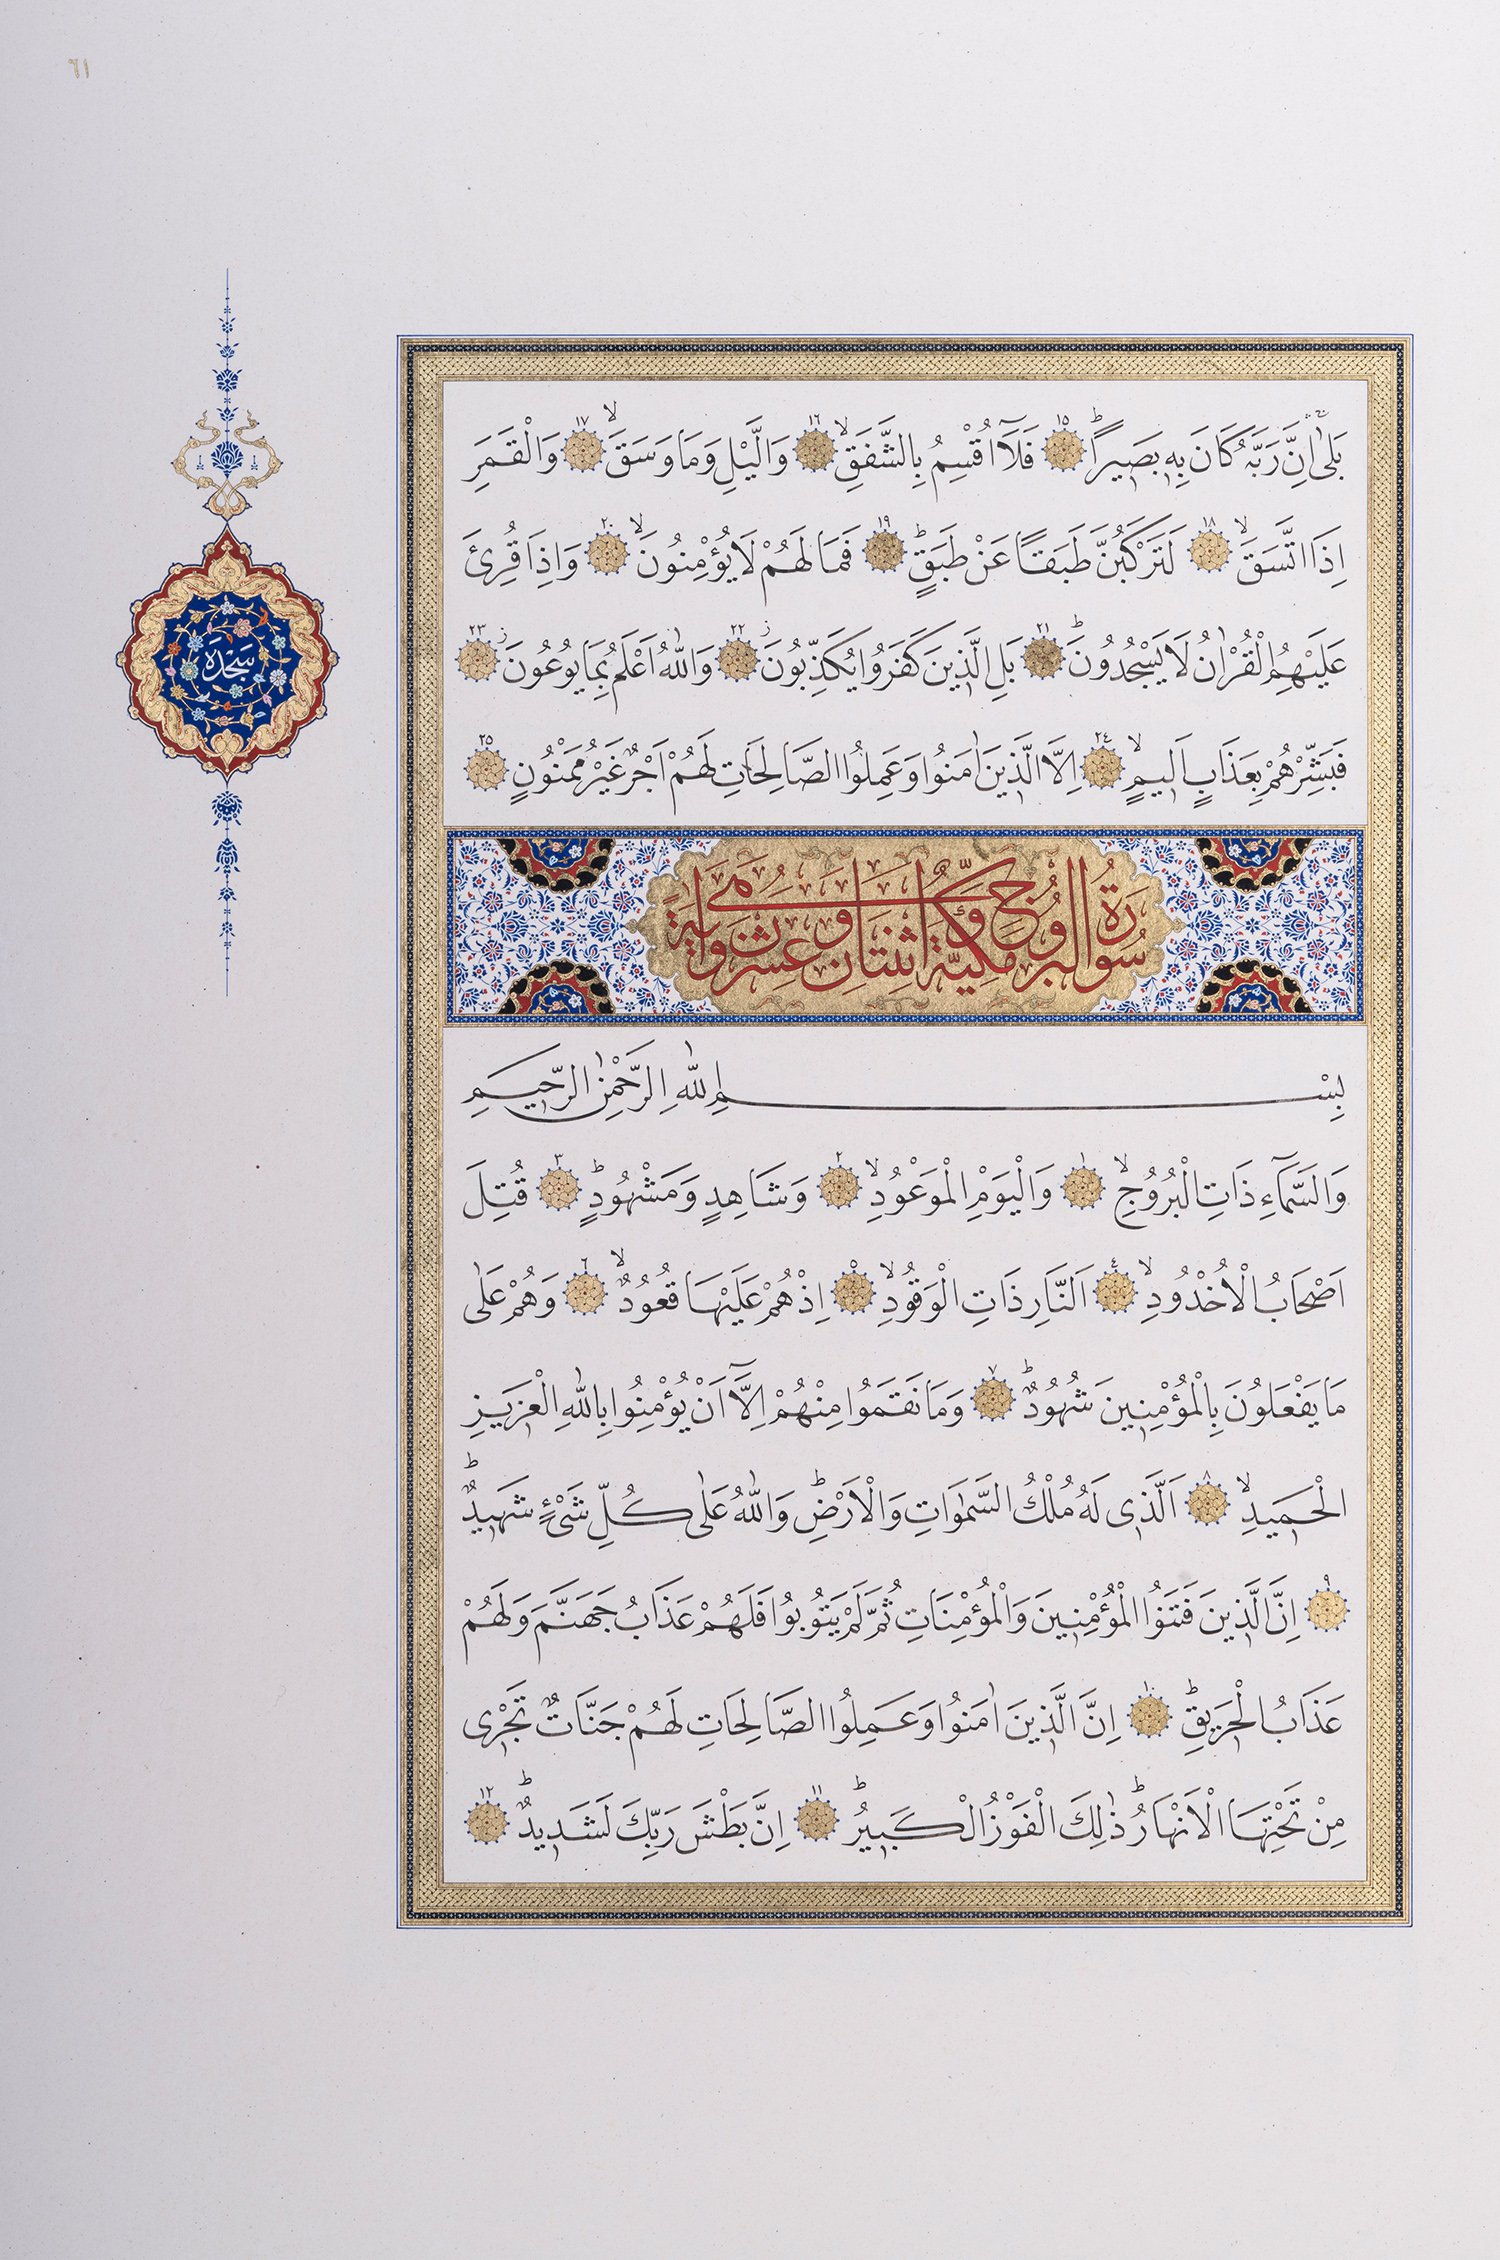 ٦١
بَلٰىۚ اِنَّ رَبَّهُ كَانَ بِهٖ بَصٖيرًاۜ ١٥ فَلَٓا اُقْسِمُ بِالشَّفَقِۙ ١٦ وَالَّيْلِ وَمَا وَسَقَۙ ١٧ وَالْقَمَرِ
اِذَا اتَّسَقَۙ ١٨ لَتَرْكَبُنَّ طَبَقًا عَنْ طَبَقٍۜ ١٩ فَمَا لَهُمْ لَا يُؤْمِنُونَۙ ٢٠ وَاِذَا قُرِئَ
عَلَيْهِمُ الْقُرْاٰنُ لَا يَسْجُدُونَۜ ٢١ بَلِ الَّذٖينَ كَفَرُوا يُكَذِّبُونَؗ ٢٢ وَاللّٰهُ اَعْلَمُ بِمَا يُوعُونَؗ ٢٣
سَجْدَه
فَبَشِّرْهُمْ بِعَذَابٍ اَلٖيمٍۙ ٢٤ اِلَّا الَّذٖينَ اٰمَنُوا وَعَمِلُوا الصَّالِحَاتِ لَهُمْ اَجْرٌ غَيْرُ مَمْنُونٍ ٢٥
سُورَةُ الْبُرُوجِ مَكِّيَّةٌ وَهِيَ اثْنَتَانِ وَعِشْرُونَ اٰيَةً
بِسْمِ اللّٰهِ الرَّحْمٰنِ الرَّحٖيمِ
وَالسَّمَٓاءِ ذَاتِ الْبُرُوجِۙ ١ وَالْيَوْمِ الْمَوْعُودِۙ ٢ وَشَاهِدٍ وَمَشْهُودٍۜ ٣ قُتِلَ
اَصْحَابُ الْاُخْدُودِۙ ٤ اَلنَّارِ ذَاتِ الْوَقُودِۙ ٥ اِذْ هُمْ عَلَيْهَا قُعُودٌۙ ٦ وَهُمْ عَلٰى
مَا يَفْعَلُونَ بِالْمُؤْمِنٖينَ شُهُودٌۜ ٧ وَمَا نَقَمُوا مِنْهُمْ اِلَّٓا اَنْ يُؤْمِنُوا بِاللّٰهِ الْعَزٖيزِ
الْحَمٖيدِۙ ٨ اَلَّذٖى لَهُ مُلْكُ السَّمٰوَاتِ وَالْاَرْضِۜ وَاللّٰهُ عَلٰى كُلِّ شَىْءٍ شَهٖيدٌۜ
٩ اِنَّ الَّذٖينَ فَتَنُوا الْمُؤْمِنٖينَ وَالْمُؤْمِنَاتِ ثُمَّ لَمْ يَتُوبُوا فَلَهُمْ عَذَابُ جَهَنَّمَ وَلَهُمْ
عَذَابُ الْحَرٖيقِۜ ١٠ اِنَّ الَّذٖينَ اٰمَنُوا وَعَمِلُوا الصَّالِحَاتِ لَهُمْ جَنَّاتٌ تَجْرٖى
مِنْ تَحْتِهَا الْاَنْهَارُۜ ذٰلِكَ الْفَوْزُ الْكَبٖيرُۜ ١١ اِنَّ بَطْشَ رَبِّكَ لَشَدٖيدٌۜ ١٢